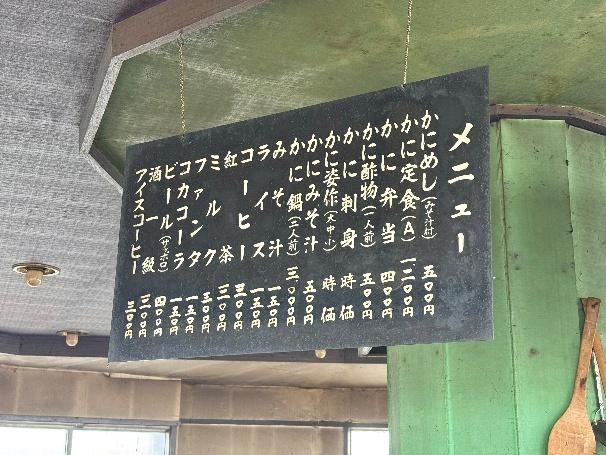 メニュー
かにめし(みそ汁付) 五〇〇円
かに定食(A) 一、二〇〇円
かに弁当 四〇〇円
かに酢物(一人前) 五〇〇円
かに刺身 時価
かに姿作(大中小) 時価
かにみそ汁 五〇〇円
かに鍋(二人前) 三、〇〇〇円
みそ汁 一五〇円
ライス 一五〇円
コーヒー 三〇〇円
紅茶 三〇〇円
ミルク 三〇〇円
ファンタ 一五〇円
コカコーラ 一五〇円
ビール(サッポロ) 四〇〇円
酒一級 三〇〇円
アイスコーヒー 三〇〇円